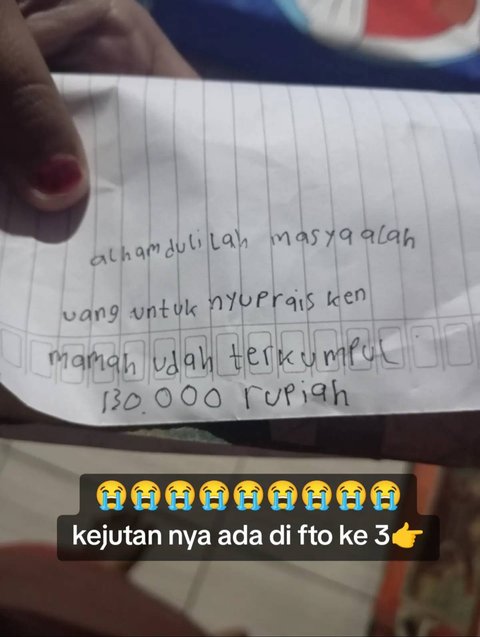 alhamdulilah masyaalah
uang untuk nyuprais ken
mamah udah terkumpul
130.000 rupiah
😭😭😭😭😭😭😭😭😭
kejutan nya ada di fto ke 3👉